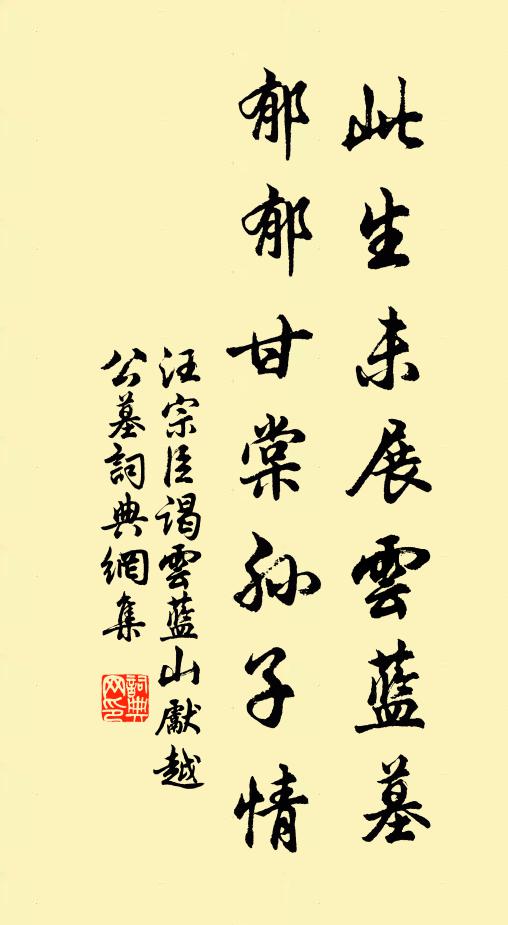 此生未展雲藍墓
郁郁甘棠孫子情
汪宗臣謁雲藍山獻越
公墓詞典網集
詞典网印